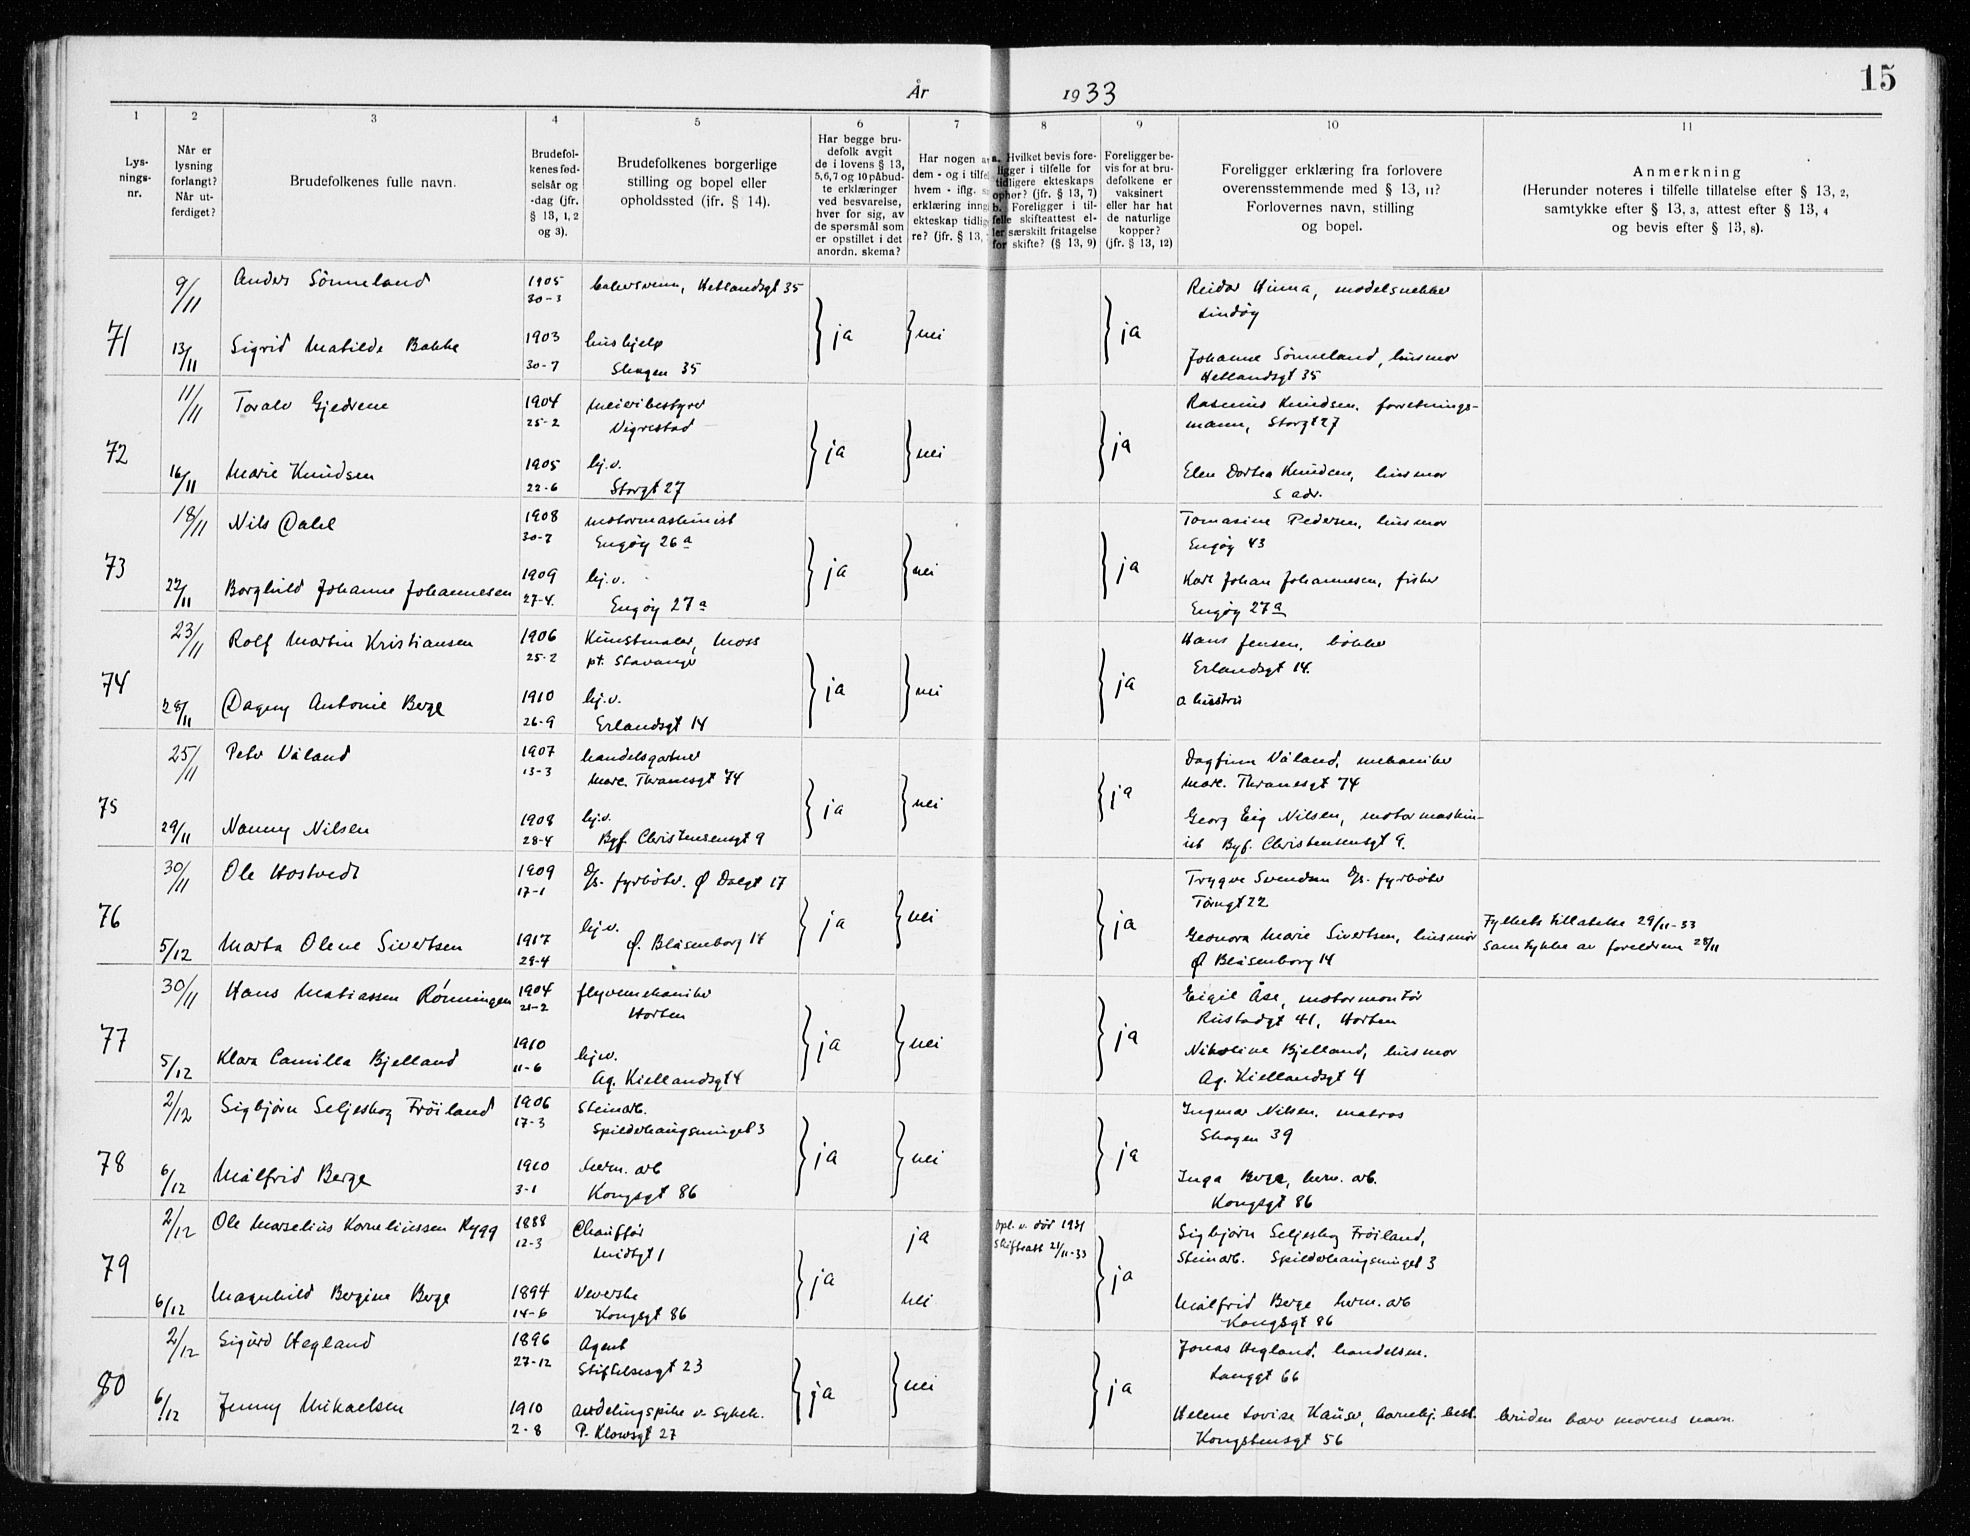 År 1933
15
1 2 3 4 5 6 7 8 9 10 11
Lys-
nings-
nr.
Når er
lysning
forlangt?
Når ut-
ferdiget?
Brudefolkenes fulle navn.
Brudefol-
kenes fød-
selsår og
-dag (jfr.
§ 13, 1, 2
og 3).
Brudefolkenes borgerlige
stilling og bopel eller
opholdssted (ifr. § 14).
Har begge bru-
defolk avgit
de i lovens § 13,
5, 6, 7 og 10 påbud-
te erklæringer
ved besvarelse,
hver for sig, av
de spørsmål som
er opstillet i det
anordn. skema?
Har nogen av
dem - og i tilfel
hvem - iflg.
erklæring inng
ekteskap tidlig
re? (jfr. § 13,
a. Hvilket bevis fore-
ligger i tilfelle for
tidligere ekteskaps
ophør? (jfr. § 13, 7)
b. Foreligger i til-
felle skifteattest el-
ler særskilt fritagelse
for skifte? (§ 13, 9)
Foreligger be-
vis for at bru-
defolkene er
vaksinert
eller har hat
de naturlige
kopper?
(jfr. § 13, 12)
Foreligger erklæring fra forlovere
overensstemmende med § 13, 11?
Forlovernes navn, stilling
og bopel.
Anmerkning
(Herunder noteres i tilfelle tillatelse efter § 13, 2,
samtykke efter § 13, 3, attest efter § 13, 4
og bevis efter § 13, 8).
71
9/11 Anders Sönneland 1905 Hetlandsgt 35 Reidar Hinna, modelsnekker
30-3 Lindøy
ja nei ja
13/11 Sigrid Matilde Bakke 1903 hushjelp Johanne Sönneland, husmor
30-7 Skagen 35 Hetlandsgt 35
72
11/11 Toralv Gjedrem 1904 meieribestyrer Rasmus Knudsen, forretnings-
25-2 Vigrestad mann, Storgt 27
ja nei ja
16/11 Marie Knudsen 1905 hj.v. Elen Dortea Knudsen, husmor
22-6 Storgt 27 s adr.
73
18/11 Nils Dahl 1908 motormaskinist Tomasine Pedersen, husmor
30-7 Engøy 26a Engøy 43
ja nei ja
22/11 Borghild Johanne Johannesen 1909 hj.v. Karl Johan Johannesen, fisker
27-4. Engøy 27a Engøy 27a
74
23/11 Rolf Martin Kristiansen 1906 Kunstmaler, Moss Hans Jensen, bøkker
25-2 pt. Stavanger Erlandsgt 14.
ja nei ja
28/11 Dagny Antonie Berge 1910 hj.v. o hustru
26-9 Erlandsgt 14
75
25/11 Peter Våland 1907 handelsgartner Dagfinn Våland, mekaniker
13-3 Marc. Thranesgt 74 Marc. Thranesgt 74
ja nei ja
29/11 Nanny Nilsen 1908 hj.v. Georg Eig Nilsen, motormaskin-
28-4 Byf. Christensensgt 9 ist Byf. Christensensgt 9.
76
30/11 Ole Hostvedt 1909 D/s. fyrbøter. Ø Dalgt 17 Trygve Svendsen D/s. fyrbøter
17-1 Tårngt 22
ja nei ja Fylkets tillatelse 29/11-33
5/12 Marta Olene Sivertsen 1917 hj.v. Leonora Marie Sivertsen, husmor samtykke av foreldrene 28/11
28-4 Ø. Blåsenborg 14 Ø Blåsenborg 14
77
30/11 Hans Matiassen Rönningen 1904 flyvemekaniker Eigil Åse, motormontör
21-2 Horten Rustadgt 41, Horten
ja nei ja
5/12 Klara Camilla Bjelland 1910 hj.v. Nikoline Bjelland, husmor
11-6 Ag. Kiellandsgt 4 Ag. Kiellandsgt 4
78
2/12 Sigbjörn Seljeskog Fröiland 1906 Steinarb. Ingmar Nilsen, matros
17-3 Spilderhaugsminget 3 Skagen 39
ja nei ja
6/12 Målfrid Berge 1910 herm. arb Inga Berge, herm. arb.
3-1 Kongsgt 86 Kongsgt 86
79
2/12 Ole Marselius Korneliussen Rygg 1888 Chaufför ja Opl. v. dör 1931 Sigbjörn Seljeskog Fröiland,
12-3 Midtgt 1 Skifteatt 21/11-33 Steinarb. Spilderhaugsminget 3
ja ja
6/12 Magnhild Bergine Berge 1894 Veverske nei Målfrid Berge herm. arb
14-6 Kongsgt 86 Kongsgt 86
80
2/12 Sigurd Hegland 1896 Agent Jonas Hegland, handelsm.
27-12 Stiftelsesgt 23 Langgt 66
ja nei ja
6/12 Jenny Mikaelsen 1910 avdelingspike v. Sykeh. Helene Lovise Hauser, barnehj. best. bruden bærer morens navn.
2-8 P. Klowsgt 27 Kongstensgt 56